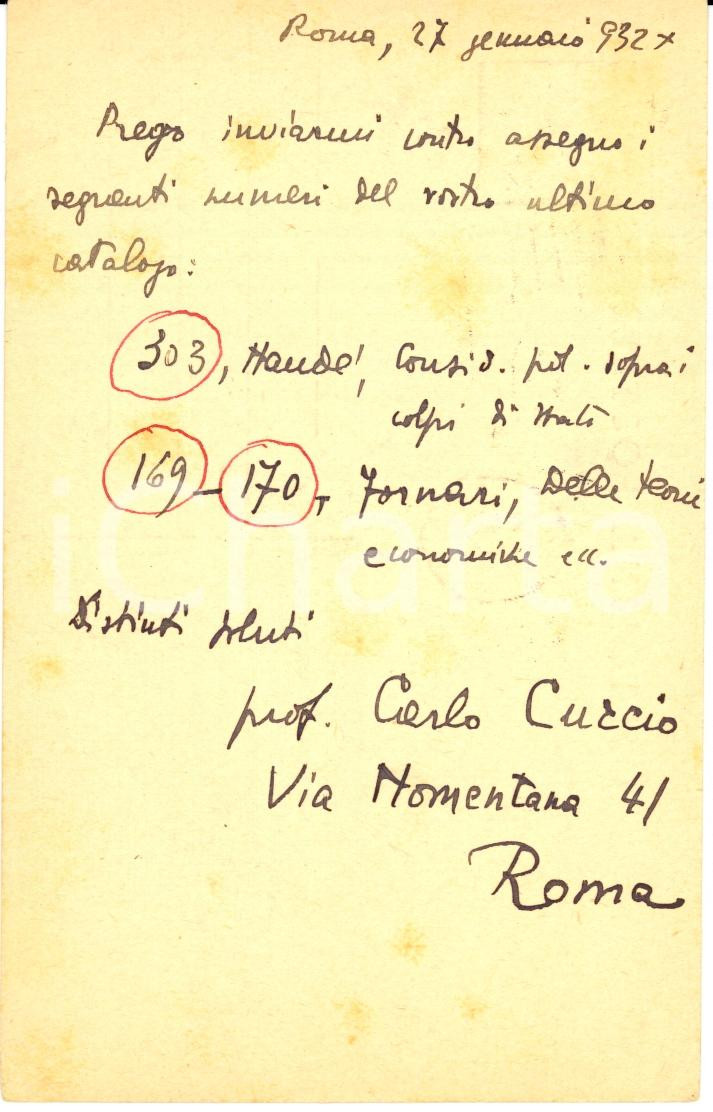 Roma, 27 gennaio 932 X
Prego inviarmi contro assegno i
seguenti numeri del vostro ultimo
catalogo:
303, Naudé, Consid. pol. sopra i
colpi di Stato
169 - 170, Fornari, Delle teorie
economiche ecc.
Distinti saluti
prof. Carlo Curcio
Via Nomentana 41
Roma
iCharta